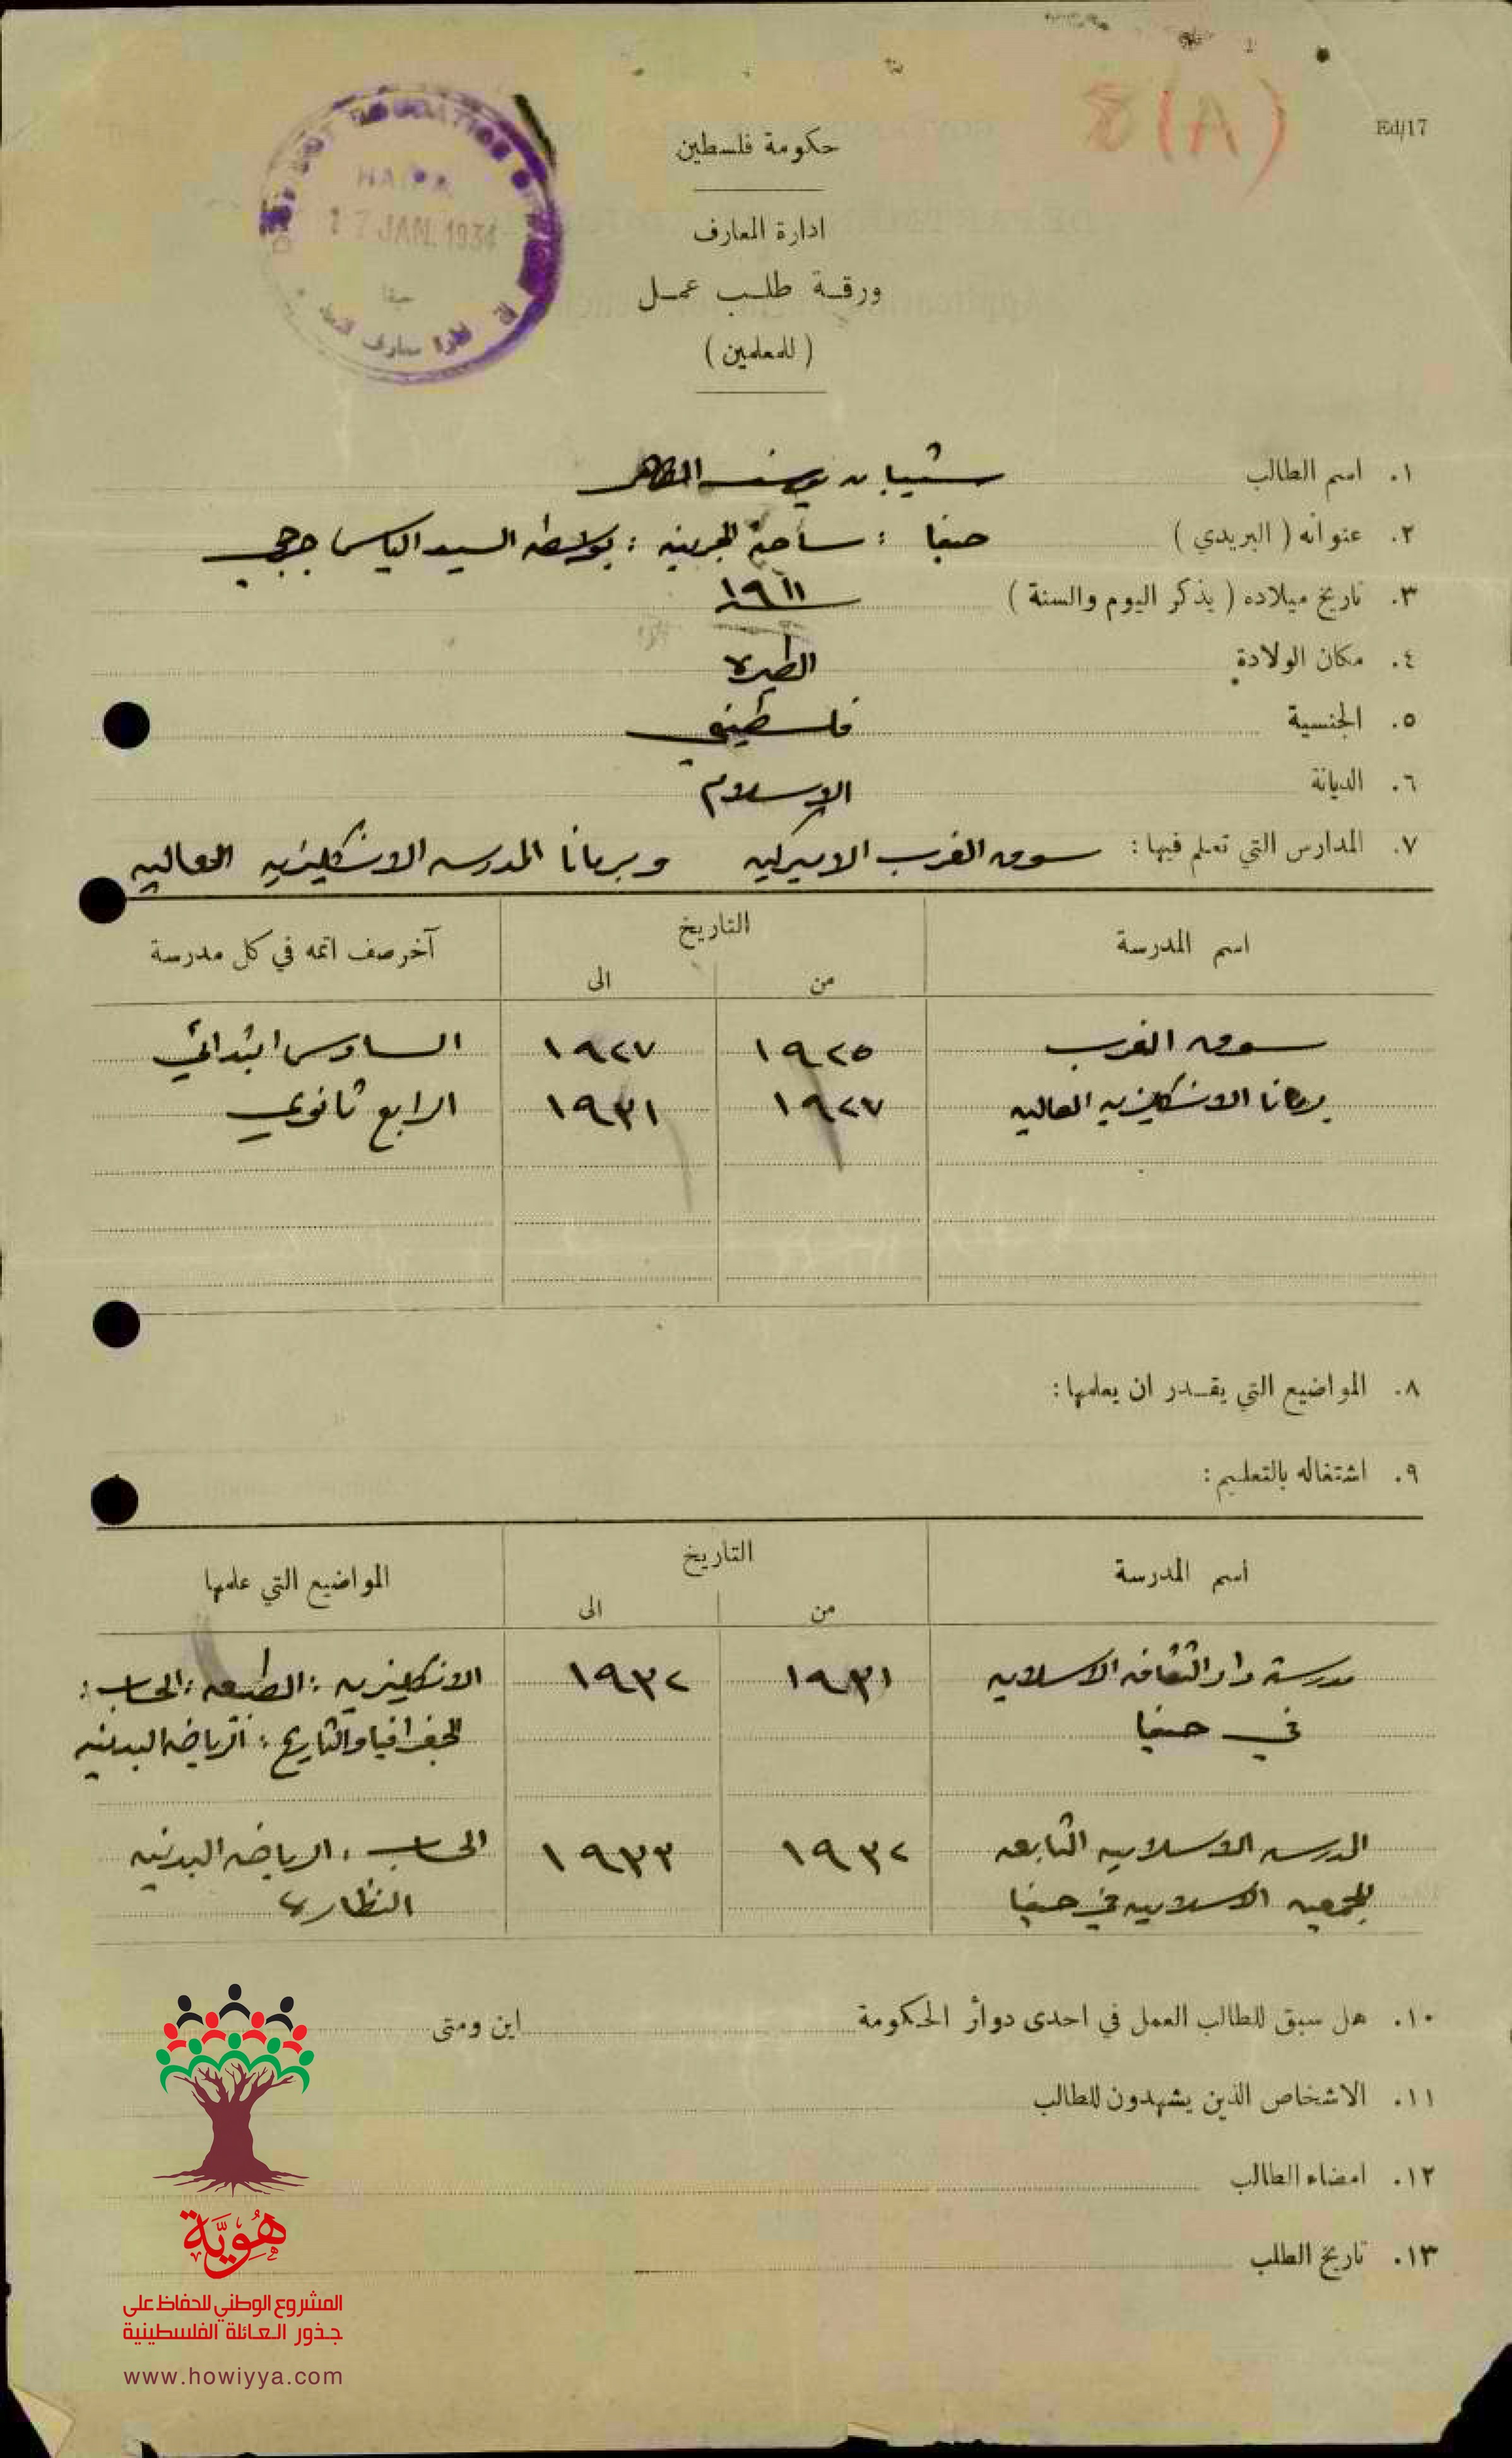 Ed/17
8 (A)
حكومة فلسطين
ادارة المعارف
ورقة طلب عمل
( للمعلمين )
HAIFA
17 JAN. 1934
حيفا
١. اسم الطالب شيبان يوسف
٢. عنوانه ( البريدي ) حيفا : ساحة الجرينه : بواسطة السيد الياس
٣. تاريخ ميلاده ( يذكر اليوم والسنة ) ١٩١١
٤. مكان الولادة الطيره
٥. الجنسية فلسطيني
٦. الديانة الاسلام
٧. المدارس التي تعلم فيها : سوق الغرب الاميركيه وبرمانا المدرسه الانكليزيه العاليه
اسم المدرسة التاريخ آخر صف اتمه في كل مدرسة
من الى
سوق الغرب ١٩٢٥ ١٩٢٧ السادس ابتدائي
برمانا الانكليزيه العاليه ١٩٢٧ ١٩٣١ الرابع ثانوي
٨. المواضيع التي يقدر ان يعلمها :
٩. اشتغاله بالتعليم :
اسم المدرسة التاريخ المواضيع التي علمها
من الى
مدرسة دار الثقافه الاسلاميه ١٩٣١ ١٩٣٢ الانكليزيه : الطبيعه : الحساب :
في حيفا الجغرافيا والتاريخ : الرياضه البدنيه
المدرسه الاسلاميه التابعه ١٩٣٢ ١٩٣٣ الحساب ، الرياضه البدنيه
للجمعيه الاسلاميه في حيفا النظاره
١٠. هل سبق للطالب العمل في احدى دوائر الحكومة اين ومتى
١١. الاشخاص الذين يشهدون للطالب
١٢. امضاء الطالب
١٣. تاريخ الطلب
هُوِيَّة
المشروع الوطني للحفاظ على
جذور العائلة الفلسطينية
www.howiyya.com